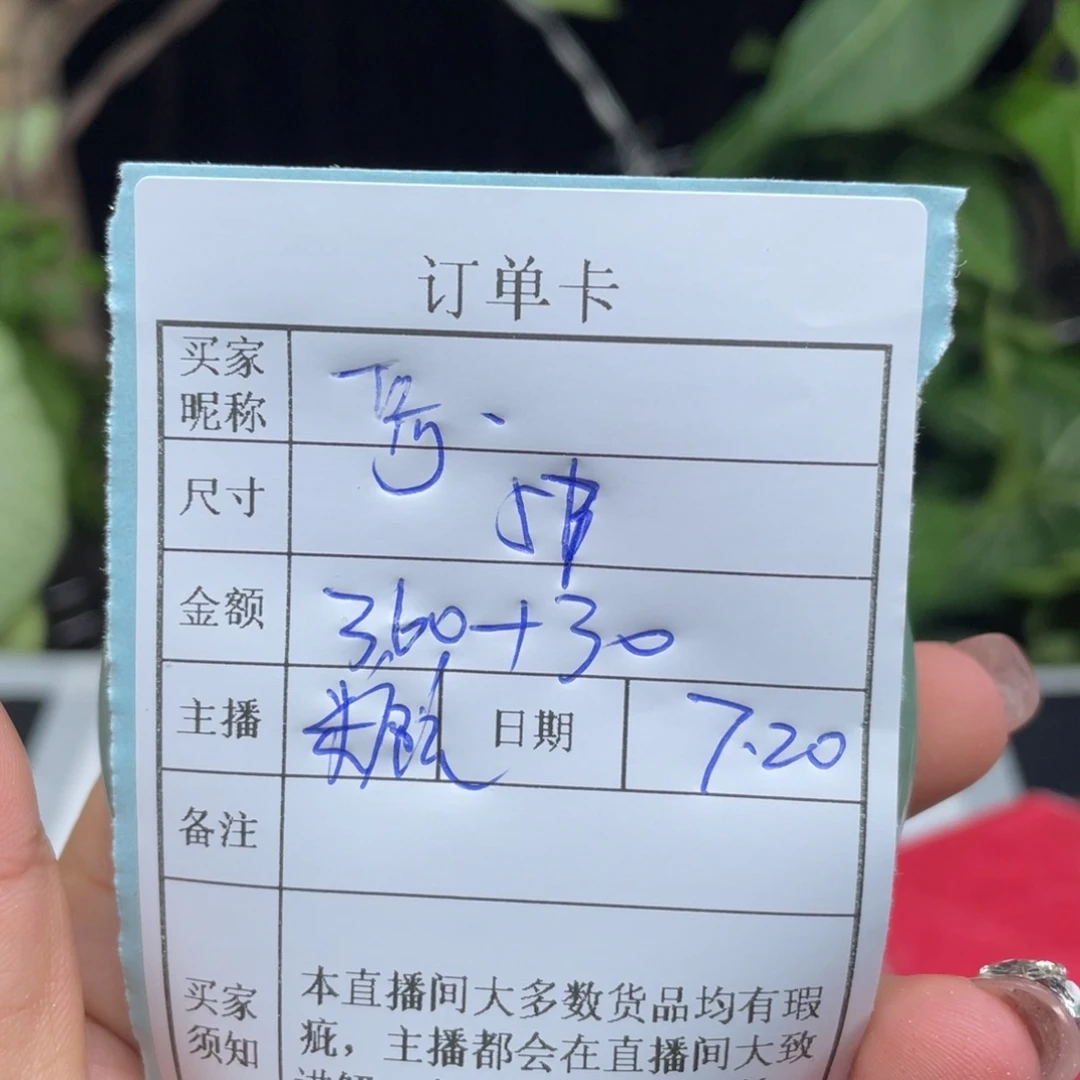 订单卡
买家
昵称
尺寸
金额 360+30
主播 日期 7.20
备注
买家
须知
本直播间大多数货品均有瑕
疵，主播都会在直播间大致